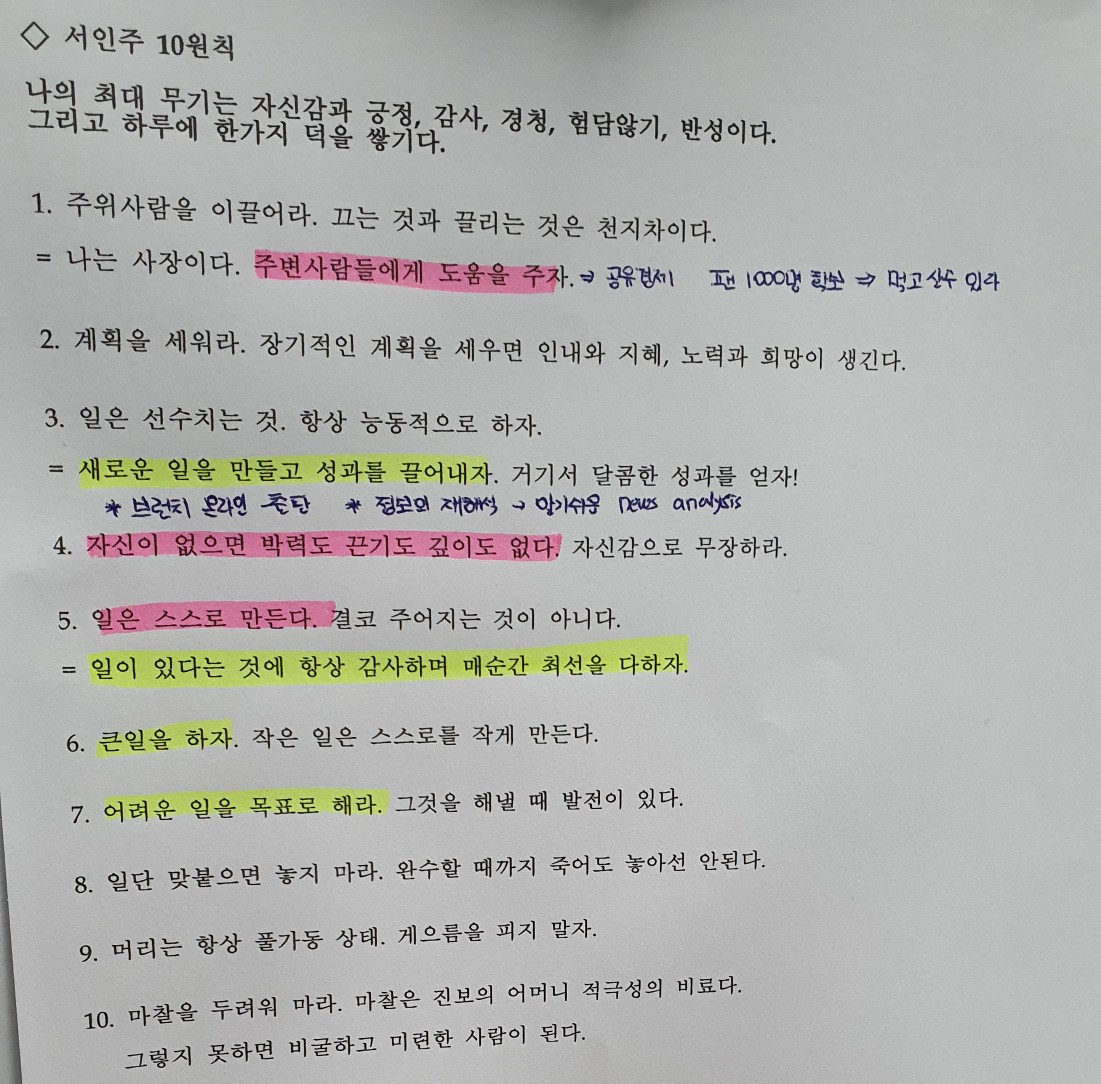 ◇ 서인주 10원칙
나의 최대 무기는 자신감과 긍정, 감사, 경청, 험담않기, 반성이다.
그리고 하루에 한가지 덕을 쌓기다.
1. 주위사람을 이끌어라. 끄는 것과 끌리는 것은 천지차이다.
= 나는 사장이다. 주변사람들에게 도움을 주자. ⇒ 공유경제 팬 1000명 확보 ⇒ 먹고 살수 있다
2. 계획을 세워라. 장기적인 계획을 세우면 인내와 지혜, 노력과 희망이 생긴다.
3. 일은 선수치는 것. 항상 능동적으로 하자.
= 새로운 일을 만들고 성과를 끌어내자. 거기서 달콤한 성과를 얻자!
* 브런치 온라인 * 정보의 재해석 → 알기쉬운 news analysis
4. 자신이 없으면 박력도 끈기도 깊이도 없다. 자신감으로 무장하라.
5. 일은 스스로 만든다. 결코 주어지는 것이 아니다.
= 일이 있다는 것에 항상 감사하며 매순간 최선을 다하자.
6. 큰일을 하자. 작은 일은 스스로를 작게 만든다.
7. 어려운 일을 목표로 해라. 그것을 해낼 때 발전이 있다.
8. 일단 맞붙으면 놓지 마라. 완수할 때까지 죽어도 놓아선 안된다.
9. 머리는 항상 풀가동 상태. 게으름을 피지 말자.
10. 마찰을 두려워 마라. 마찰은 진보의 어머니 적극성의 비료다.
그렇지 못하면 비굴하고 미련한 사람이 된다.